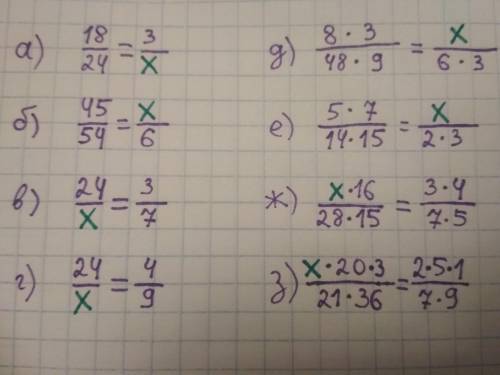 а) 18/24 = 3/x
б) 45/54 = x/6
в) 24/x = 3/7
г) 24/x = 4/9
д) 8·3/48·9 = x/6·3
е) 5·7/14·15 = x/2·3
ж) x·16/28·15 = 3·4/7·5
з) x·20·3/21·36 = 2·5·1/7·9